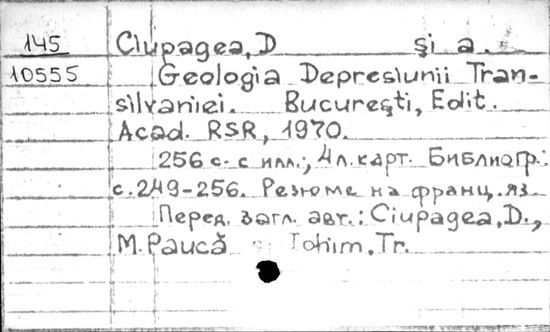 145 Ciupagea, D şi a.
10555 Geologia Depresiunii Tran-
silvaniei. Bucureşti, Edit.
Acad. RSR, 1970.
256 с. с илл.; 4л.карт. Библиогр.:
с.249-256. Резюме на франц.яз
Перед. загл. авт.: Ciupagea, D.,
M. Paucă Tr.